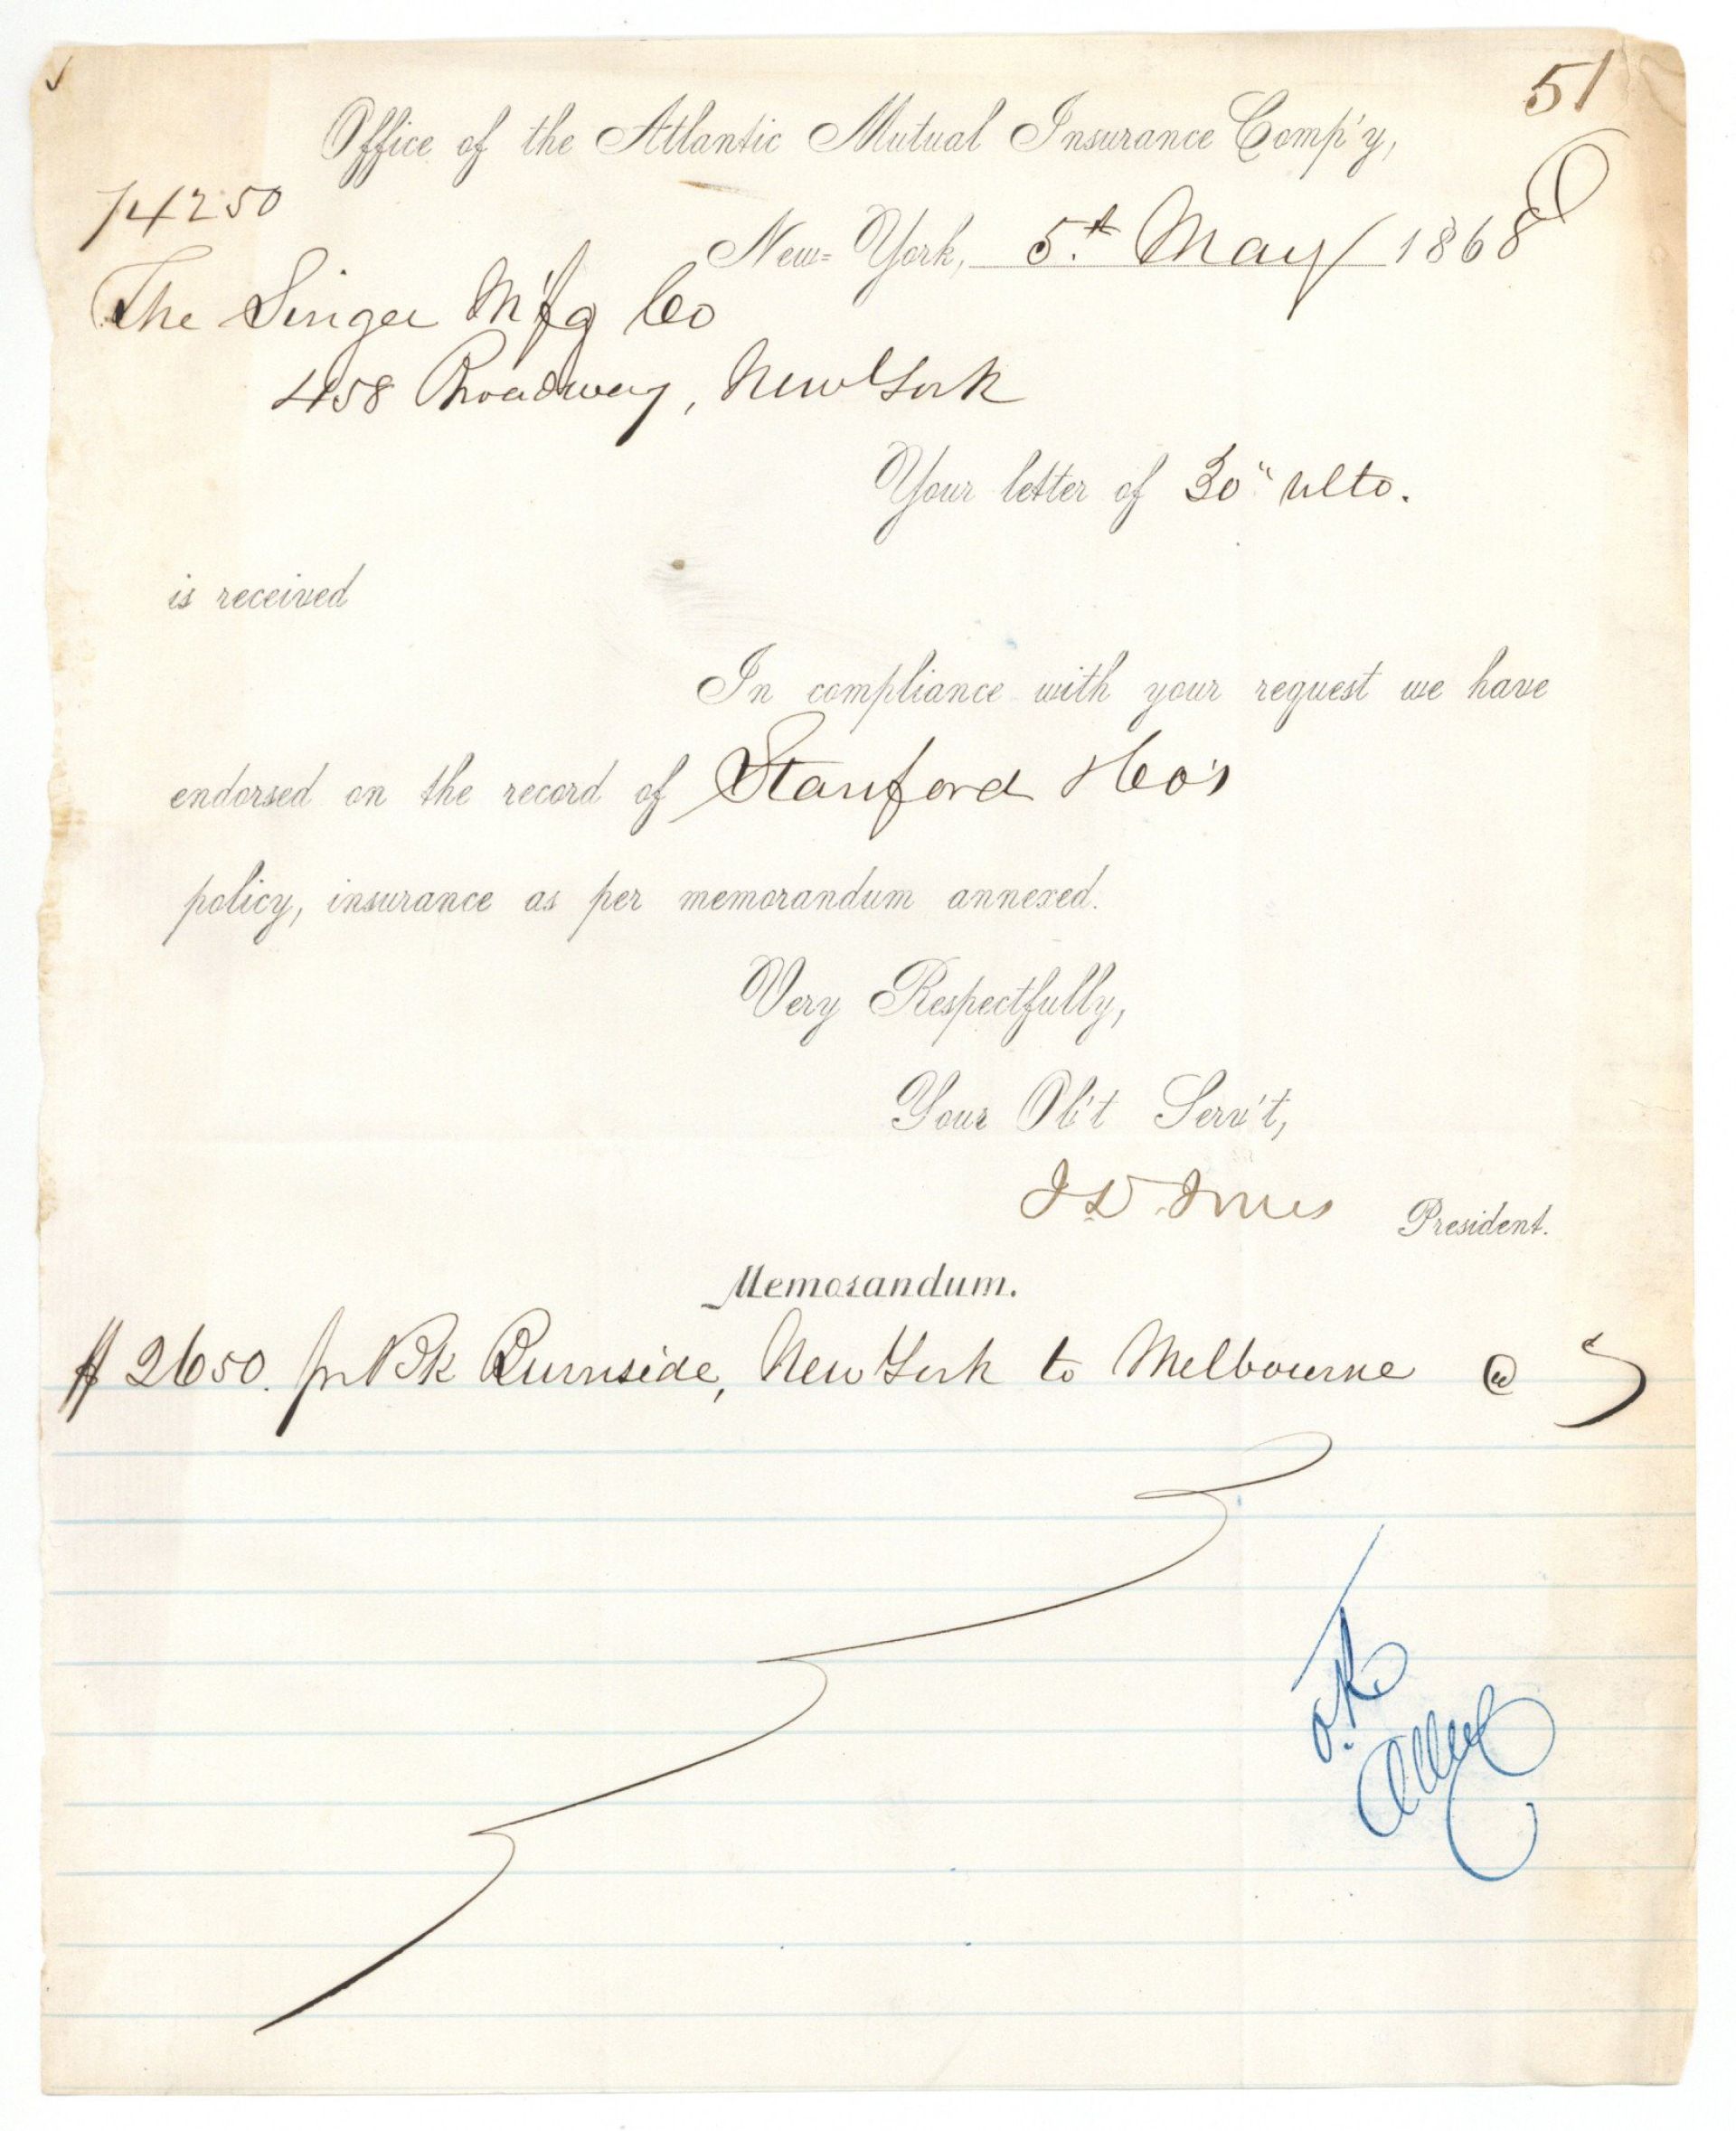 51
Office of the Atlantic Mutual Insurance Comp'y,
74250
New-York, 5th May 1868
The Singer M'fg Co
458 Broadway, New York
Your letter of 30" ulto.
is received
In compliance with your request we have
endorsed on the record of Stanford & Co's
policy, insurance as per memorandum annexed.
Very Respectfully,
Your Ob't Serv't,
J D Jones President.
Memorandum.
$2650. pr Bk Burnside, New York to Melbourne @
O.K.